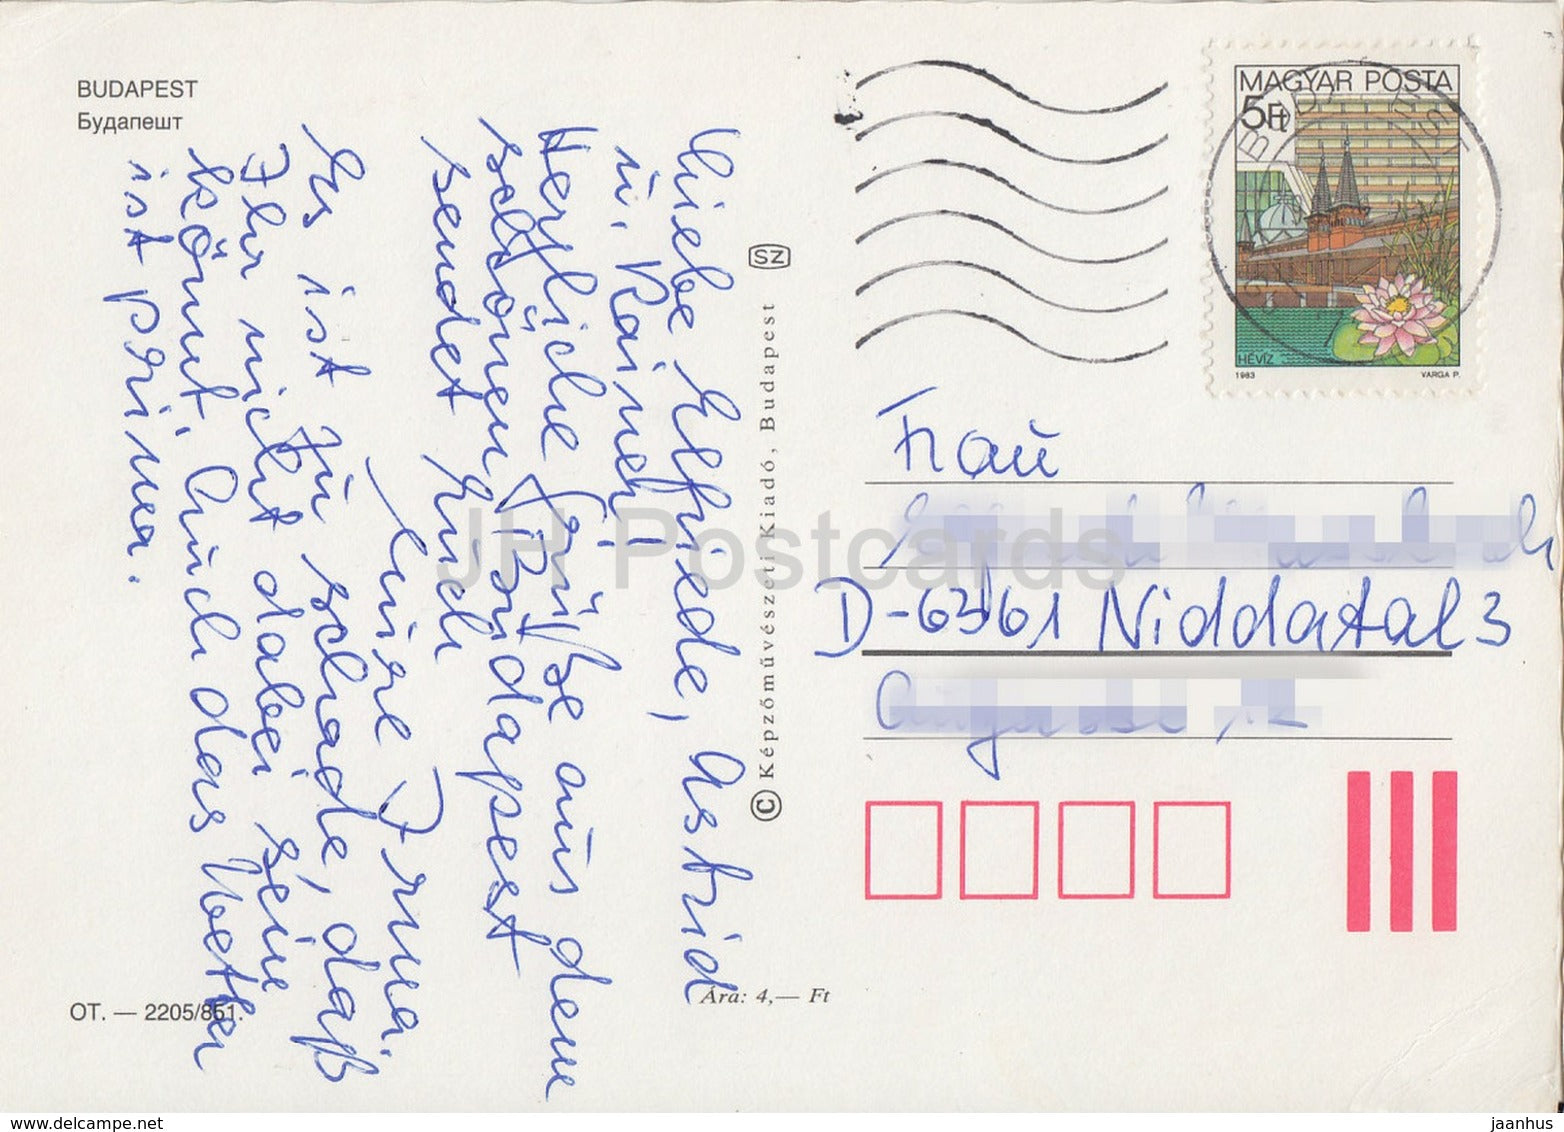 BUDAPEST
Будапешт
Liebe Elfriede, Astrid
u. Rainer!
Herzliche Grüße aus dem
schönen Budapest
sendet Euch
Eure Irma.
Es ist zu schade, daß
Ihr nicht dabei sein
könnt. Auch das Wetter
ist prima.
SZ
© Képzőművészeti Kiadó, Budapest
OT. — 2205/851.
Ára: 4,— Ft
MAGYAR POSTA
5Ft
HÉVÍZ
1983 VARGA P.
Frau
D-6361 Niddatal 3
JH Postcards
jaanhus